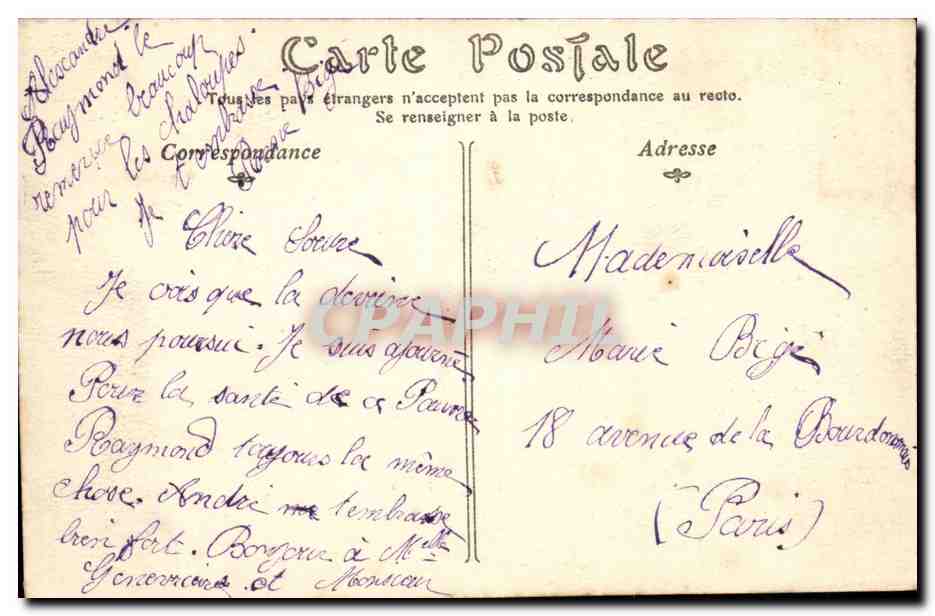 Carte Postale
Tous les pays étrangers n'acceptent pas la correspondance au recto.
Se renseigner à la poste.
Correspondance
Adresse
Alescandre
Raymond te
remercie beaucoup
pour les chaloupes.
Je t'embrasse
Bigé
Chère Soeure
Je crois que la deveine
nous poursui. Je suis ajourné
Pour la santé de ce Pauvre
Raymond toujours la même
chose. André me t'embrasse
bien fort. Bonjour à Melle
Genevieve et Monsieur
Mademoiselle
Marie Bigé
18 avenue de la Bourdonnais
(Paris)
CPAPHIL